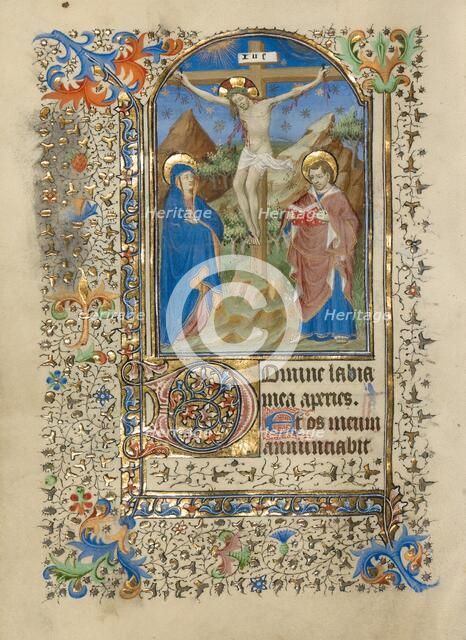 IHC
Domine labia
mea aperies.
Et os meum
annunciabit
Heritage
Heritage
Heritage
Heritage
Heritage
Heritage
C